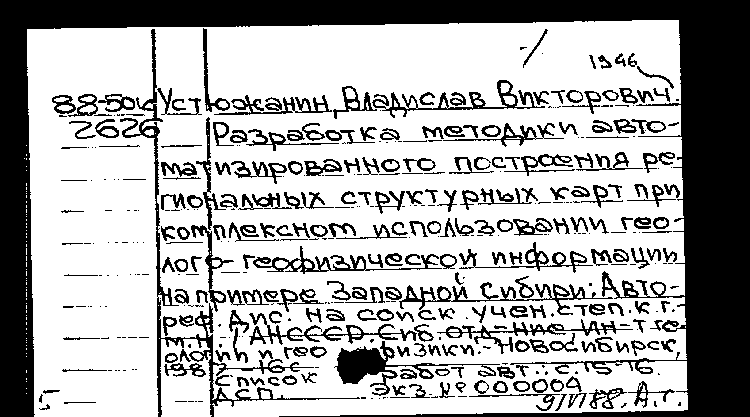 -/
1946
88-50 Устюжанин, Владислав Викторович.
2626 Разработка методики авто-
матизированного построения ре-
гиональных структурных карт при
комплексном использовании гео-
лого-геофизической информации
на примере Западной Сибири: Авто-
реф. дис. на соиск. учен. степ. к.г.-
м.н. / АН СССР. Сиб. отд-ние, Ин-т ге-
ологии и геофизики.- Новосибирск,
198 - 16с
Список работ авт.: с.15-16.
ДСП. Экз №000004
5 88. А.г.